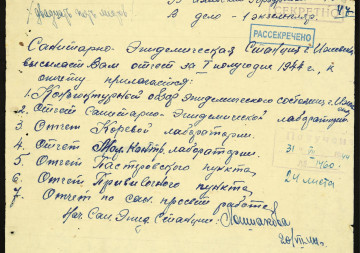 В дело - 1 экземпляр.
СЕКРЕТНО
РАССЕКРЕЧЕНО
Санитарно-Эпидемическая Станция г.
высылает Вам отчет за I полугодие 1944 г., к
отчету прилагается:
1. Конъюнктурный обзор эпидемического состояния г.
2. Отчет Санитарно-Эпидемической лаборатории.
3. Отчет Коревой лаборатории.
4. Отчет лаборатории.
5. Отчет Пастеровского пункта,
6. Отчет Прививочного пункта,
7. Отчет по сан. просвет работе
24 листа
Нач. Сан. Эпид. Станции
20/VII 44.